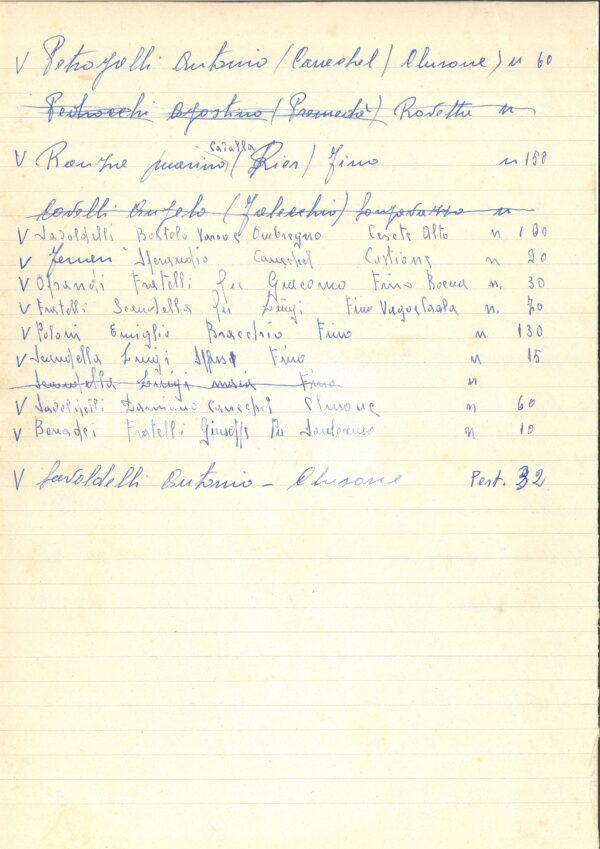 V Petrogalli Antonio (Canechel) Clusone) n 60
Pedrocchi Agostino (Premedè) Rovetta n
V Ranzre marino (Rier) Fino n 150
Cavalla
Covelli Angelo (Falecchio) Songavazzo n
V Savoldelli Bortolo Ombregno Cerete Alto n 100
V Ferrari Sperandio Caneshel Castione n 20
V Oprandi Fratelli fu Giacomo Fino n. 30
V Fratelli Scandella fu Luigi Fino n. 70
V Poloni Emiglio Bracchio Fino n 130
V Scandella Luigi Fino n 15
Scandella Luigi maria Fino n
V Savoldelli Damiano Canechel Clusone n 60
V Fratelli Giuseppe n 10
V Savoldelli Antonio - Clusone Pert. 32